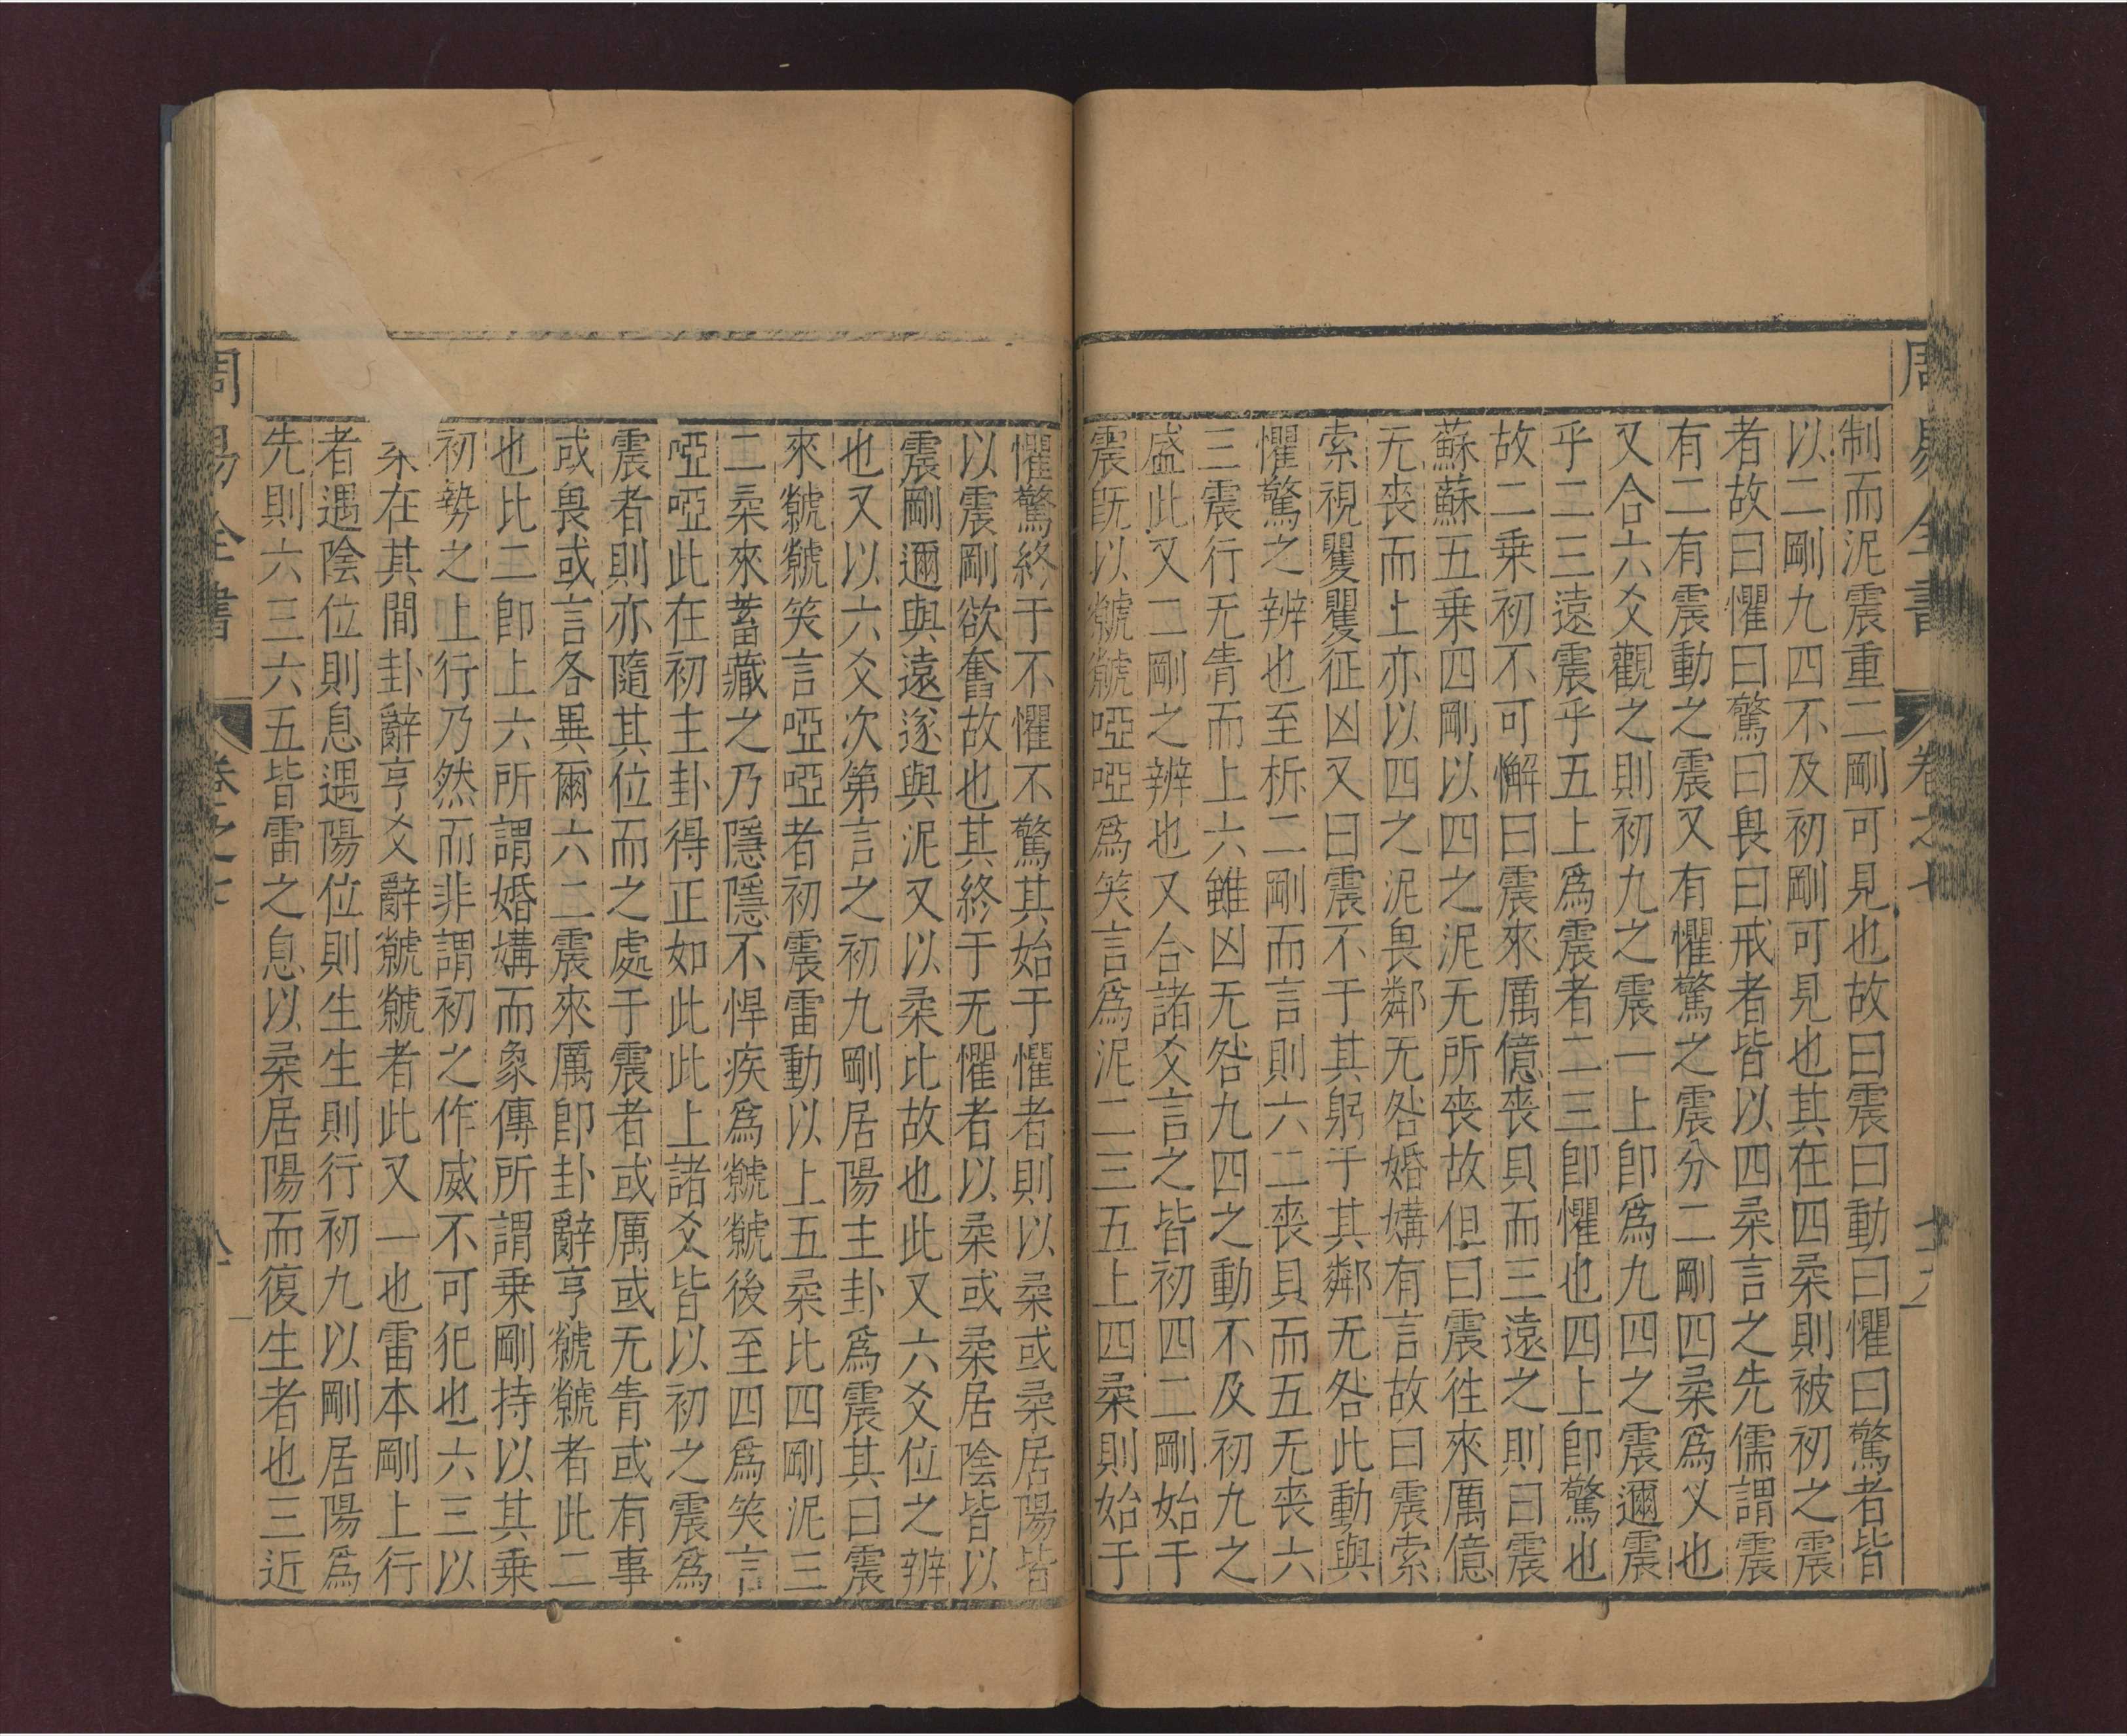 周易全書
卷之七
制而泥震重二剛可見也故曰震曰動曰懼曰驚者皆
以二剛九四不及初剛可見也其在四柔則被初之震
者故曰懼曰驚曰畏曰戒者皆以四柔言之先儒謂震
有二有震動之震又有懼驚之震分二剛四柔爲义也
又合六爻觀之則初九之震一上卽爲九四之震邇震
乎二三遠震乎五上爲震者二三卽懼也四上卽驚也
故二乗初不可懈曰震來厲億喪貝而三遠之則曰震
蘇蘇五乗四剛以四之泥无所喪故但曰震徃來厲億
无喪而上亦以四之泥畏鄰无咎婚媾有言故曰震索
索視矍矍征凶又曰震不于其躬于其鄰无咎此動與
懼驚之辨也至析二剛而言則六二喪貝而五无喪六
三震行无眚而上六雖凶无咎九四之動不及初九之
盛此又二剛之辨也又合諸爻言之皆初四二剛始于
震旣以虩虩啞啞爲笑言爲泥二三五上四柔則始于
懼驚終于不懼不驚其始于懼者則以柔或柔居陽皆
以震剛欲奮故也其終于无懼者以柔或柔居陰皆以
震剛邇與遠遂與泥又以柔比故也此又六爻位之辨
也又以六爻次第言之初九剛居陽主卦爲震其曰震
來虩虩笑言啞啞者初震雷動以上五柔比四剛泥三
二柔來蓄藏之乃隱隱不悍疾爲虩虩後至四爲笑言
啞啞此在初主卦得正如此此上諸爻皆以初之震爲
震者則亦隨其位而之處于震者或厲或无眚或有事
或畏或言各異爾六二震來厲卽卦辭亨虩虩者此二
也比二卽上六所謂婚媾而象傳所謂乗剛持以其乗
初勢之上行乃然而非謂初之作威不可犯也六三以
柔在其間卦辭亨爻辭虩虩者此又一也雷本剛上行
者遇陰位則息遇陽位則生生則行初九以剛居陽爲
先則六三六五皆雷之息以柔居陽而復生者也三近
周易全書
卷之七